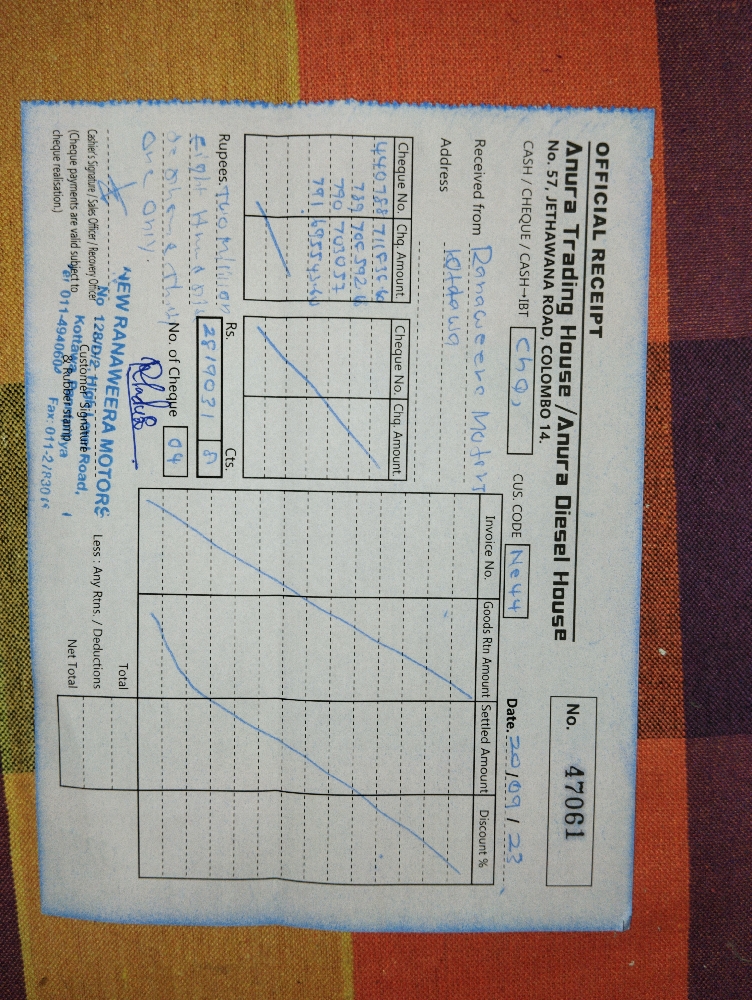 OFFICIAL RECEIPT
Anura Trading House / Anura Diesel House
No. 57, JETHAWANA ROAD, COLOMBO 14.
No. 47061
CASH / CHEQUE / CASH-IBT Chq,
CUS. CODE Ne44
Date. 20/09/23
Received from Ranaweera Motors
Address Kottawa
Cheque No. Chq. Amount.
440788
789
790 703037
791
Cheque No. Chq. Amount.
Invoice No. Goods Rtn Amount Settled Amount Discount %
Rupees Two Million
Eight Hundred
One Only.
Rs. Cts.
2819031
No. of Cheque 04
Cashier's Signature / Sales Officer / Recovery Officer
(Cheque payments are valid subject to
cheque realisation.)
NEW RANAWEERA MOTORS
No 128/D/2 High Road,
Kottawa,
Tel 011-4940604
Fax: 011-2783016
Customer Signature
& Rubber stamp
Total
Less : Any Rtns. / Deductions
Net Total